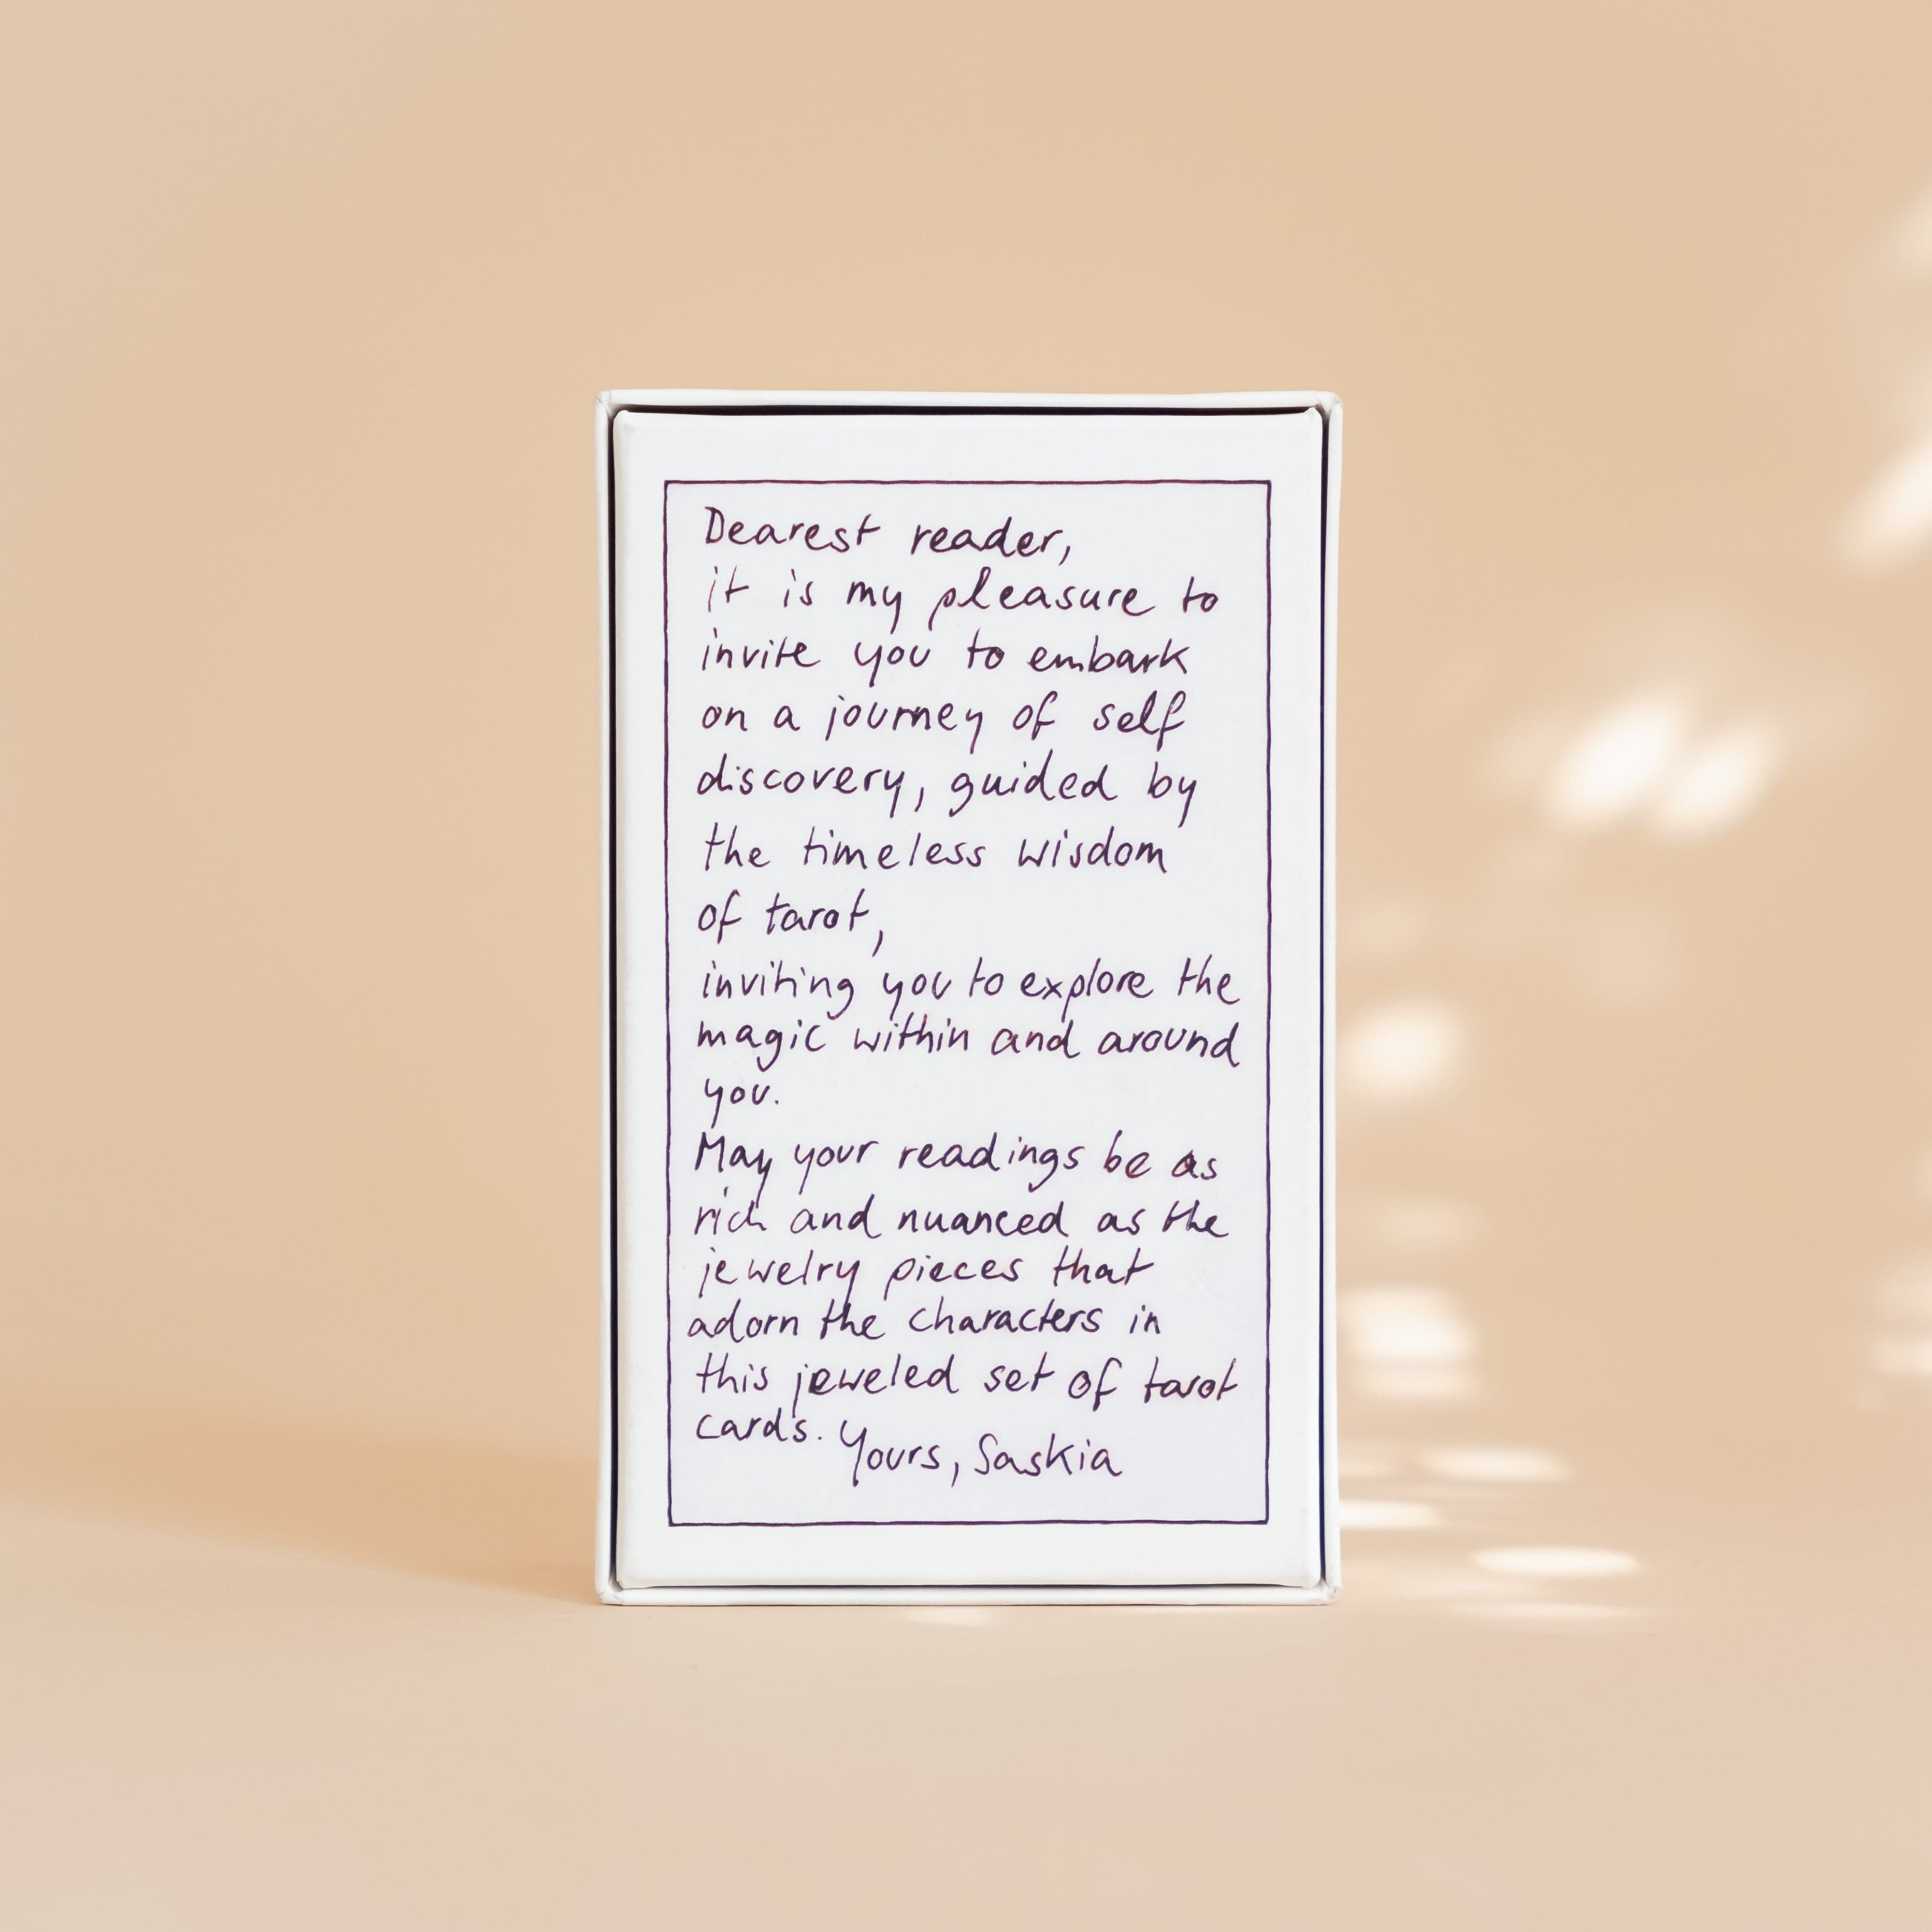 Dearest reader,
it is my pleasure to
invite you to embark
on a journey of self
discovery, guided by
the timeless wisdom
of tarot,
inviting you to explore the
magic within and around
you.
May your readings be as
rich and nuanced as the
jewelry pieces that
adorn the characters in
this jeweled set of tarot
cards. Yours, Saskia